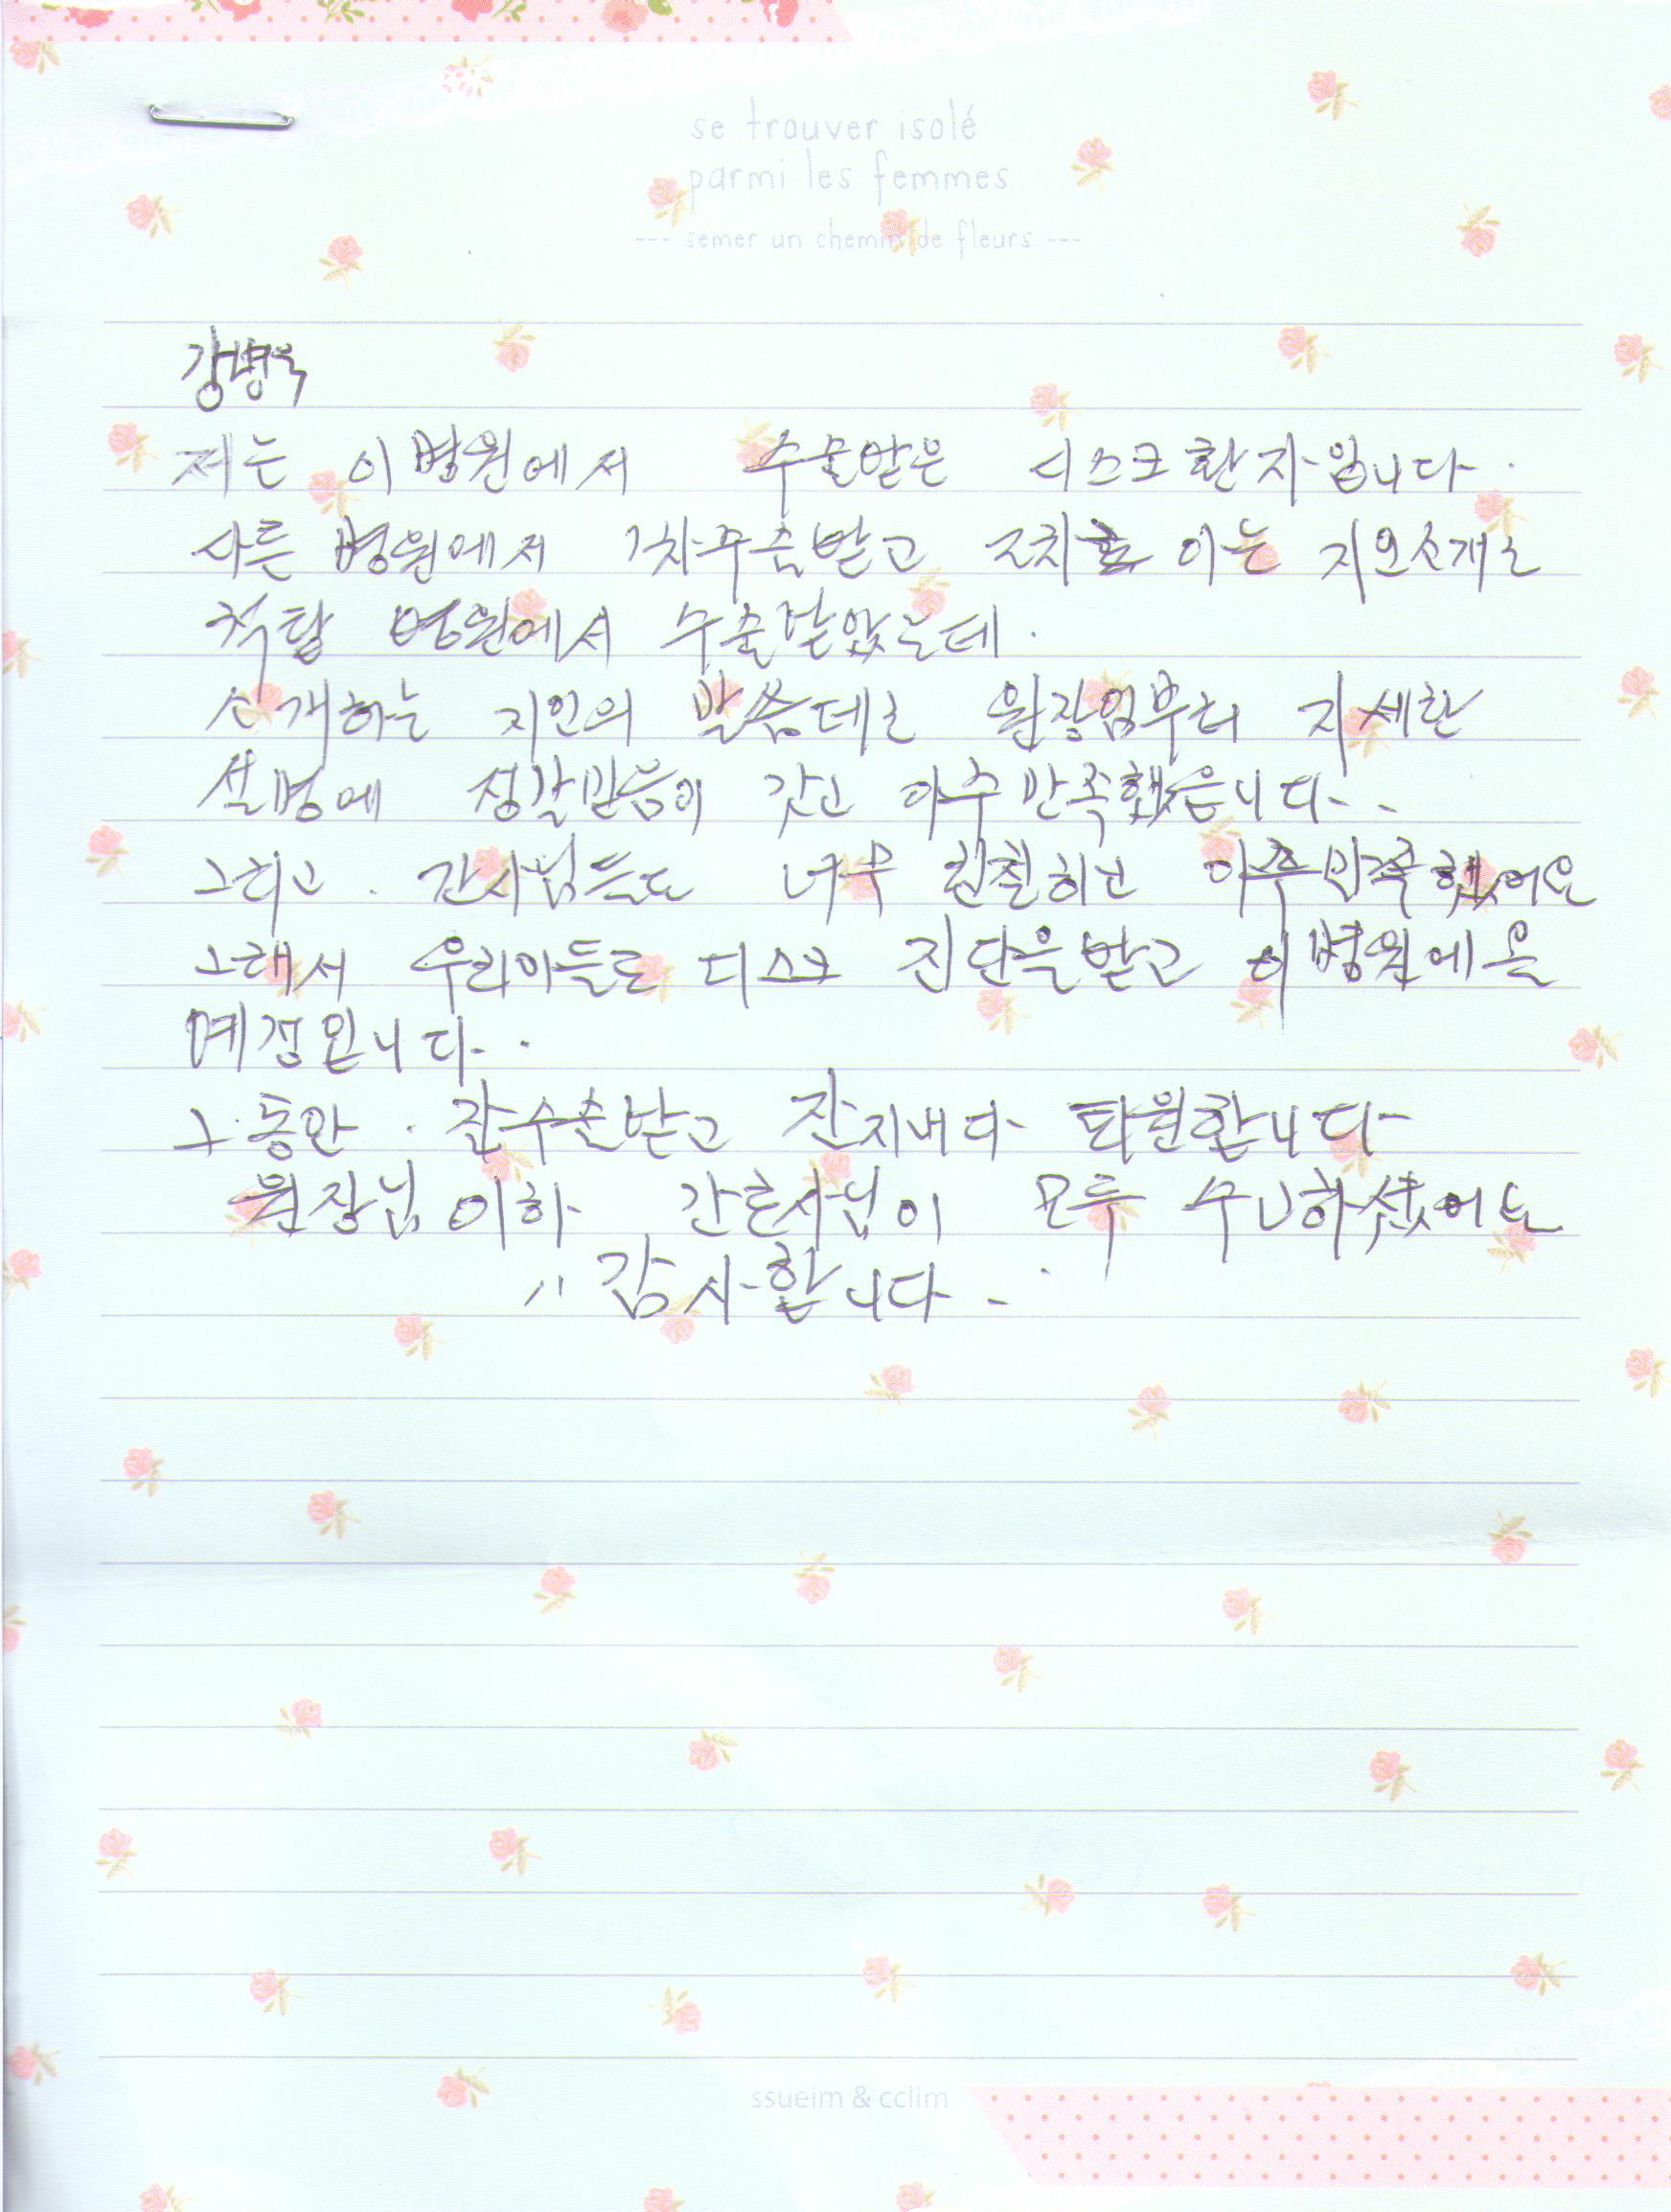 se trouver isolé
parmi les femmes
--- semer un chemin de fleurs ---
강병욱
저는 이 병원에서 수술받은 디스크 환자입니다.
다른 병원에서 1차수술받고 2차 이는 지인소개로
척탑 병원에서 수술받았는데.
소개하는 지인의 말씀데로 원장님부터 자세한
설명에 정말믿음이 갖고 아주 만족했읍니다..
그리고. 간사님들도 너무 친절하고 아주만족했어요
그래서 우리아들도 디스크 진단을받고 이병원에 올
예정입니다.
그동안. 잘수술받고 잘지내다 퇴원합니다
원장님 이하 간호사님이 모두 수고하셨어요
" 감사합니다.
ssueim & cclim